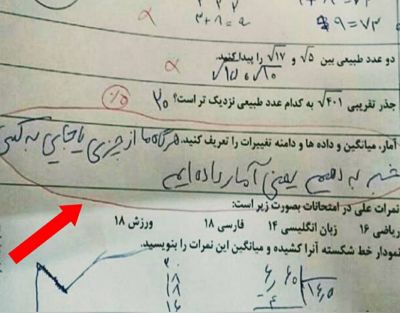 ۲ ۲ ۳
۳+۸=۹ ۹=۷۳
دو عدد طبیعی بین √۵ و √۱۷ را پیدا کنید.
√۱۵ و √۱۰
جذر تقریبی √۴۰۱ به کدام عدد طبیعی نزدیک تر است؟ ۲۰
آمار، میانگین و داده ها و دامنه تغییرات را تعریف کنید. هرگاه ما از چیزی یا جایی به کسی
خبر بدهیم یعنی آمار داده ایم
نمرات علی در امتحانات بصورت زیر است:
ریاضی ۱۶ زبان انگلیسی ۱۴ فارسی ۱۸ ورزش ۱۸
نمودار خط شکسته آنرا کشیده و میانگین این نمرات را بنویسید.
۲۰
۱۸
۱۸
۱۶
۱۶٫۵